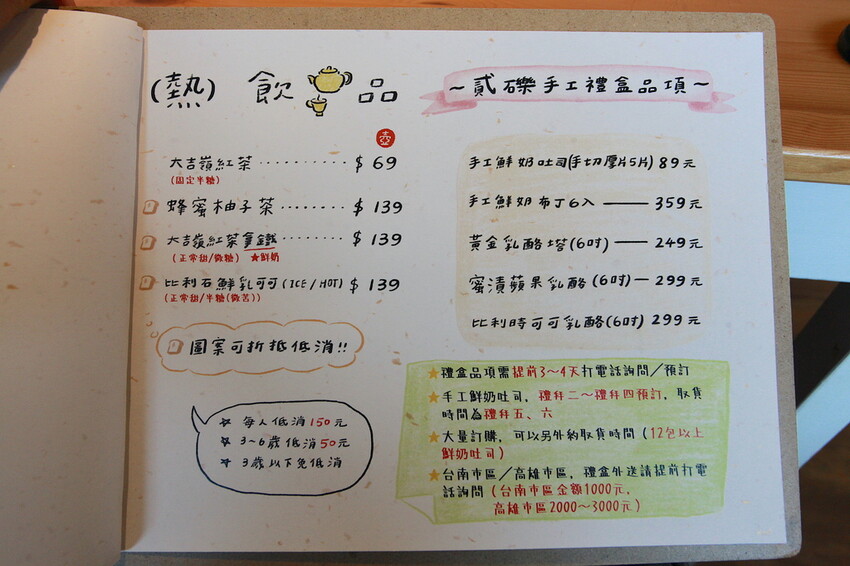 (熱) 飲 品
壺
大吉嶺紅茶 ·········· $ 69
(固定半糖)
蜂蜜柚子茶 ········ $ 139
大吉嶺紅茶拿鐵 ········ $ 139
(正常甜/微糖) ★鮮奶
比利石鮮乳可可 (ICE/HOT) $ 139
(正常甜/半糖(微苦))
圖案可折抵低消!!
☆ 每人低消150元
☆ 3~6歲低消50元
☆ 3歲以下免低消
~貳礫手工禮盒品項~
手工鮮奶吐司(手切厚片5片) 89元
手工鮮奶布丁6入 —— 359元
黃金乳酪塔(6吋) —— 249元
蜜漬蘋果乳酪(6吋) — 299元
比利時可可乳酪(6吋) 299元
★禮盒品項需提前3~4天打電話詢問/預訂
★手工鮮奶吐司,禮拜二~禮拜四預訂,取貨
時間為禮拜五、六
★大量訂購,可以另外約取貨時間(12包以上
鮮奶吐司)
★台南市區/高雄市區,禮盒外送請提前打電
話詢問(台南市區金額1000元,
高雄市區2000~3000元)